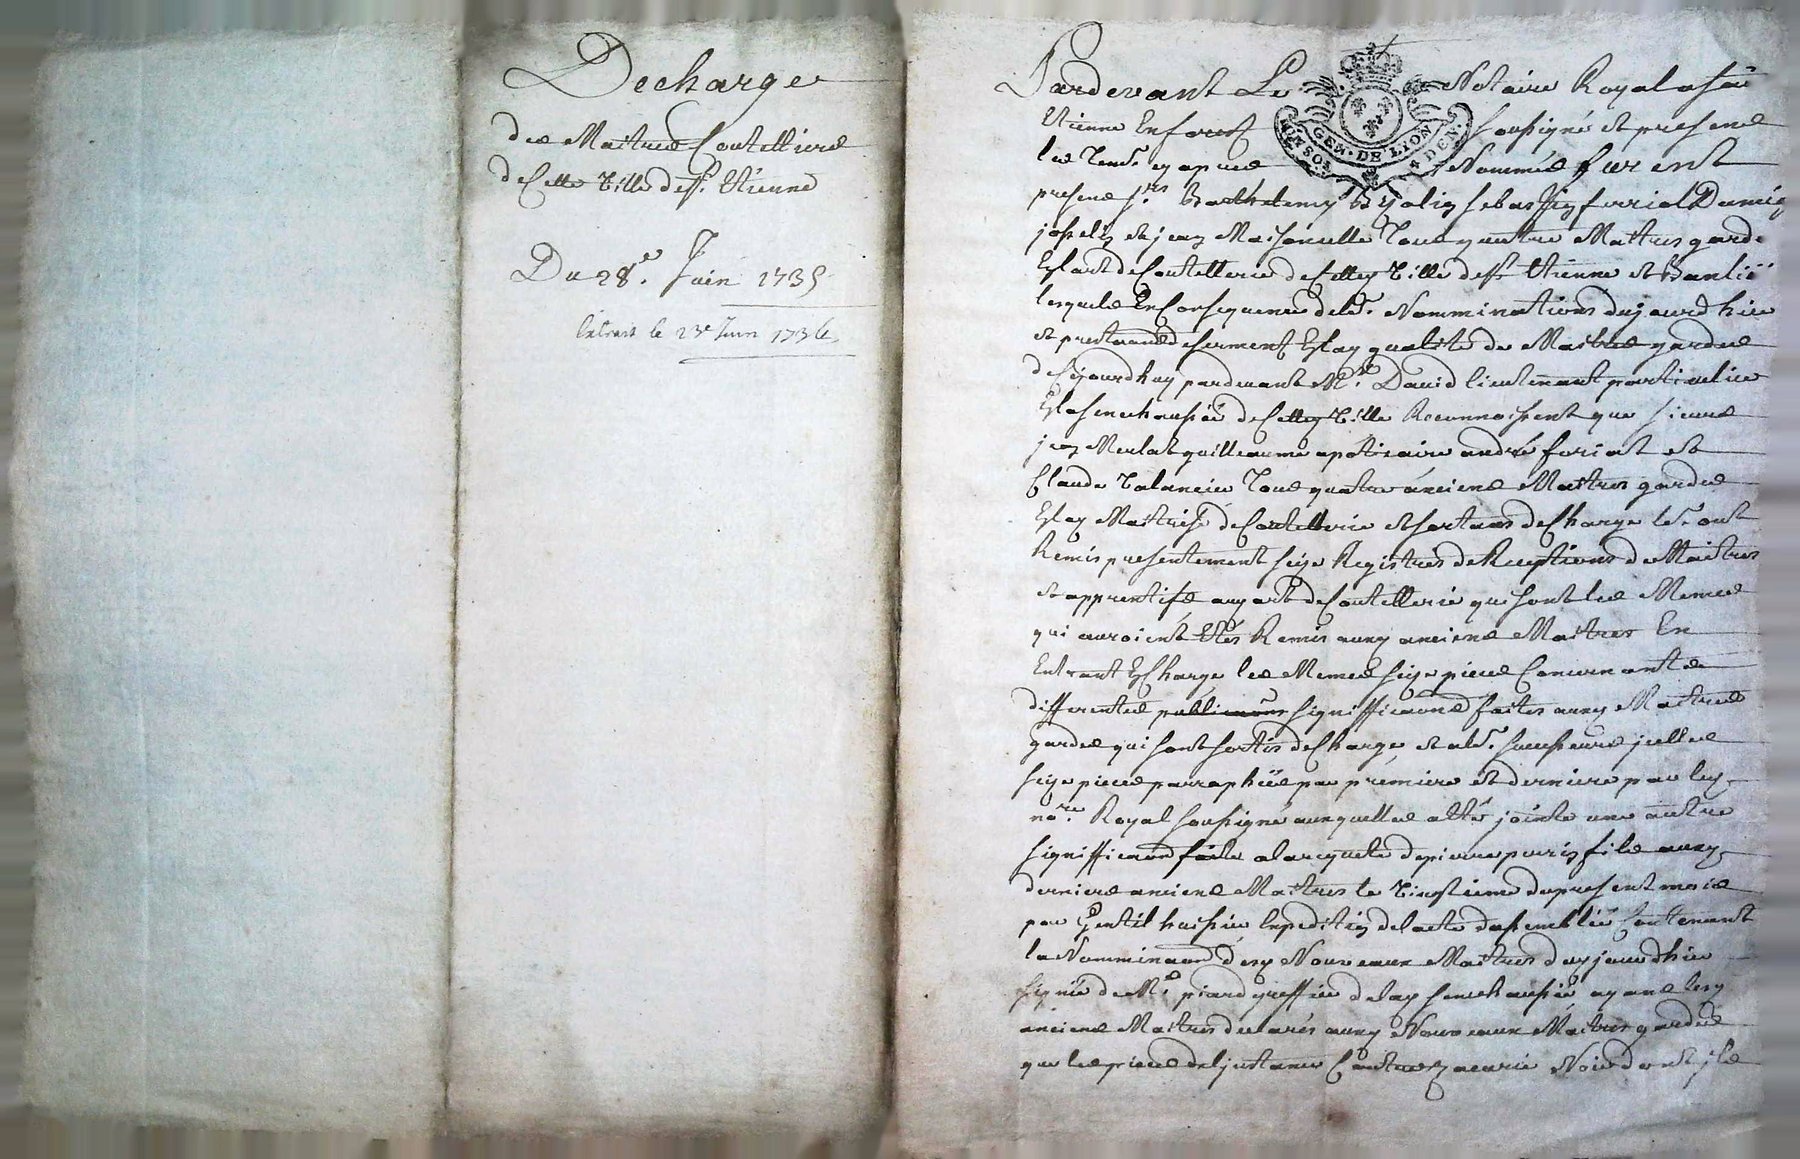 Decharge
des Maitres Coutelliers
de Cette Ville de St. Etienne
Du 28e. Juin 1735
Extrait le 23e Juin 1736
Pardevant Le Notaire Royal a saint
Etienne En forest soussigné et presens
les temt. cy apres Nommés furent
presens Srs. Barthelemy sebastien ferriol Damien
joselin et jean Maisonnette Tous quatre Maitres garde
En l'art de Coutellerie de Cette Ville de St. Etienne et Banlieü
lesquels En Consequence de la de. Nomminations du jourdhier
et prestation de serment En la qualité de Maitres gardes
de çejourdhuy pardevant Mr. David lieutenant particulier
En la senechaussée de Cette Ville Reconnoissent que sieurs
jean Merlat guilleaume apoticaire andré foriat et
Claude Valancier Tous quatre ánciens Maitres gardes
En la Maitrise de Coutellerie et sortans de Charge ont
Remis presentement seize Registres de Receptions de Maitres
et apprentifs en art de Coutellerie qui sont les Memes
qui auroient Etés Remis aux anciens Maitres En
Entrant En Charge les Memes seize pieces Concernantes
differentes signiffications faites aux Maitres
gardes qui sont sortis de Charge
seize pieces parraphées par prémiere et derniere par le
nore. Royal soussigné auxquelles a été jointe une autre
signiffication faite a la requete de pierre fils aux
derniers anciens Maitres le Vingtieme du present mois
par Gentil huissier Expedition de l'acte d'assemblée Contenant
la Nommination des Nouveaux Maitres du jourdhier
signée de Me. piard greffier de la senechaussée ayans les
ánciens Maitres declarés aux Nouveaux Maitres gardes
que les pieces de l'instance Contre Noir dont ils
GEN. DE LION
4 DEN.